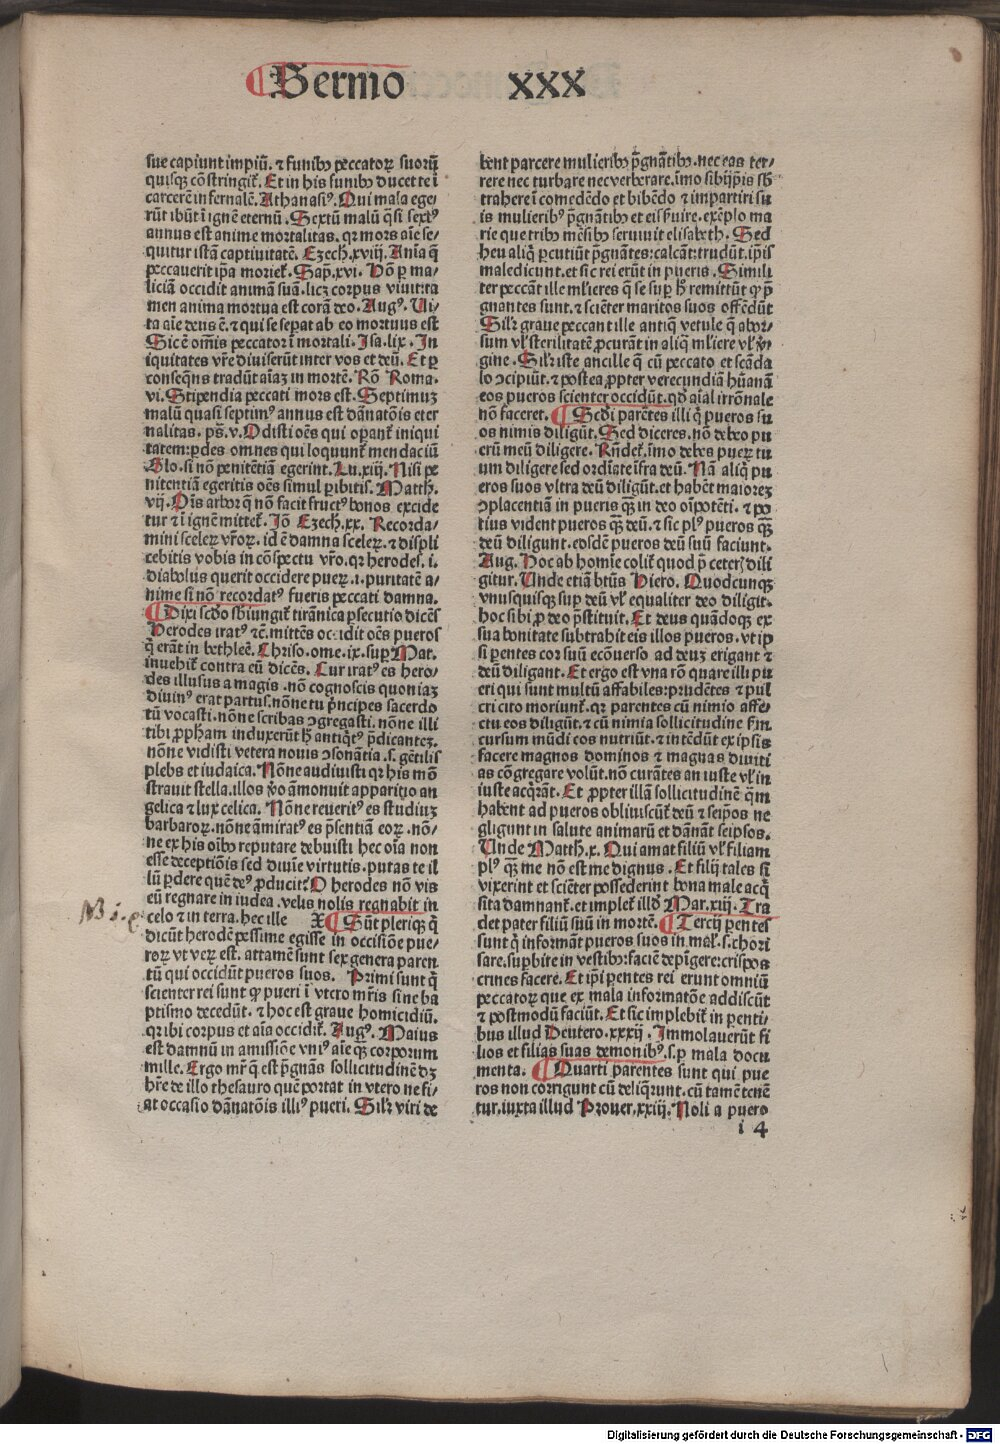 Sermo XXX
sue capiunt impiū. ⁊ funibꝰ peccatoꝝ suorū
quisqꝫ cōstringit̃. Et in his funibꝰ ducet te ī
carcerē infernalē. Athanasiꝰ. Qui mala ege-
rūt ibūt ī ignē eternū. Sextū malū q̃si sextꝰ
annus est anime mortalitas. qꝛ mors aīe se-
quitur istā captiuitatē. Ezech. xviij. Aīa q̃
peccauerit ip̃a moriet̃. Sap̃. xvi. Hō ꝑ ma-
liciā occidit animā suā. licꝫ corpus viuit: ta
men anima mortua est corā deo. Augꝰ. Ui-
ta aīe deus ē. ⁊ qui se sepat ab eo mortuus est
Sic ē om̄is peccator ī mortali. Isa. lix. In
iquitates vr̃e diuiserūt inter vos et deū. Et ꝑ
conseq̃ns tradūt aīaꝫ in mortē. Rō Roma.
vi. Stipendia peccati mors est. Septimuꝫ
malū quasi septimꝰ annus est dānatōis eter
nalitas. ps̃. v. Odisti oēs qui operant̃ iniqui
tatem: ꝑdes omnes qui loquunt̃ mendaciū
Glo. si nō penitētiā egerint. Lu. xiij. Nisi pe
nitentiā egeritis oēs simul ꝑibitis. Matth̃.
vij. Oīs arbor q̃ nō facit fructꝰ bonos excide
tur ⁊ ī ignē mittet̃. Jō Ezech. xx. Recorda-
mini sceleꝝ vr̃oꝝ. id ē damna sceleꝝ. ⁊ displi
cebitis vobis in cōspectu vr̃o. qꝛ herodes. i.
diabolus querit occidere pueꝝ. i. puritatē a-
nime si nō recordatꝰ fueris peccati damna.
¶ Dixi scd̃o sb̃iungit̃ tirānica ꝑsecutio dicēs
Herodes iratꝰ ⁊c̃. mittēs occidit oēs pueros
q̃ erāt in bethleē. Chriso. ome. ix. suꝑ Mat.
inuehit̃ contra eū dicēs. Cur iratꝰ es hero-
des illusus a magis. nō cognoscis quoniaꝫ
diuinꝰ erat partus. nōne tu p̃ncipes sacerdo
tū vocasti. nōne scribas ↄgregasti. nōne illi
tibi ꝓpham induxerūt h̃ antiq̃tꝰ p̃dicanteꝫ.
nōne vidisti vetera nouis ↄsonātia. s. gētilis
plebs et iudaica. Nōne audiuisti qꝛ his mō
strauit stella. illos ṽo āmonuit apparitio an
gelica ⁊ lux celica. Nōne reueritꝰ es studiuꝫ
barbaroꝝ. nōne āmiratꝰ es p̃sentiā eoꝝ. nō-
ne ex his oībꝰ reputare debuisti hec oīa non
esse deceptiōis sed diuīe virtutis. putas te il
lū ꝑdere quē deꝰ ꝓducit? O herodes nō vis
eū regnare in iudea. velis nolis regnabit in
celo ⁊ in terra. hec ille X ¶ Sūt pleriqꝫ q̃
dicūt herodē pessime egisse in occisiōe pue-
roꝝ vt verꝝ est. attamē sunt sex genera paren
tū qui occidūt pueros suos. Primi sunt q̃
scienter rei sunt ꝙ pueri ī vtero mr̃is sine ba
ptismo decedūt. ⁊ hoc est graue homicidiū.
qꝛ ibi corpus et aīa occidit̃. Augꝰ. Maius
est damnū in amissiōe vniꝰ aīe qꝫ̃ corporum
mille. Ergo mr̃ q̃ est p̃gnās sollicitudinē dꝫ
hr̃e de illo thesauro quē portat in vtero ne fi-
at occasio dānatōis illiꝰ pueri. Sil̃r viri de
bent parcere mulieribꝰ p̃gnātibꝰ. nec eas ter-
rere nec turbare nec verberare. īmo sibijp̃is sb̃
trahere ī comedēdo et bibēdo ⁊ impartiri su
is mulieribꝰ p̃gnātibꝰ et eis ẜuire. exēplo ma
rie que tribꝰ mēsibꝰ seruiuit elisabeth. Sed
heu aliq̃ ꝑcutiūt p̃gnātes: calcāt: trudūt. ip̃is
maledicunt. et sic rei erūt in pueris. Simili
ter peccāt ille ml̃ieres q̃ se suꝑ h̃ remittūt ꝙ p̃
gnantes sunt. ⁊ sciēter maritos suos offēdūt
Sil̃r graue peccant ille antiq̃ vetule q̃ abor-
sum vl̃ sterilitatē ꝓcurāt in aliq̃ ml̃iere vl̃ vir
gine. Sil̃r iste ancille q̃ cū peccato et scāda
lo ↄcipiūt. ⁊ postea ꝓpter verecundiā hūanā
eos pueros scienter occidūt. qd̃ aīal irrōnale
nō faceret. ¶ Scd̃i parētes illi q̃ pueros su
os nimis diligūt. Sed diceres. nō debeo pu
erū meū diligere. Rn̄det̃. īmo debes pueꝝ tu
um diligere sed ordīate īfra deū. Nā aliq̃ pu
eros suos vltra deū diligūt. et habēt maioreꝫ
ↄplacentiā in pueris qꝫ̃ in deo oīpotēti. ⁊ po
tius vident pueros qꝫ̃ deū. ⁊ sic plꝰ pueros qꝫ̃
deū diligunt. eosdē pueros deū suū faciunt.
Aug. Hoc ab homīe colit̃ quod p̃ ceteris dili
gitur. Unde etiā btūs Hiero. Quodcunqꝫ
vnusquisqꝫ suꝑ deū vl̃ equaliter deo diligit.
hoc sibi ꝓ deo p̃stituit. Et deus quādoqꝫ ex
sua bonitate subtrahit eis illos pueros. vt ip
si ꝑentes cor suū ecōuerso ad deuꝫ erigant ⁊
deū diligant. Et ergo est vna rō quare illi pu
eri qui sunt multū affabiles: prudētes ⁊ pul
cri cito moriunt̃. qꝛ parentes cū nimio affe-
ctu eos diligūt. ⁊ cū nimia sollicitudine ẜm
cursum mūdi eos nutriūt. ⁊ intēdūt ex ipsis
facere magnos dominos ⁊ magnas diuiti
as cōgregare volūt. nō curātes an iuste vl̃ in
iuste acq̃rāt. Et ꝓpter illā sollicitudinē q̃m
habent ad pueros obliuiscūt̃ deū ⁊ seip̃os ne
gligunt in salute animarū et dānāt seipsos.
Unde Matth. x. Qui amat filiū vl̃ filiam
plꝰ qꝫ̃ me nō est me dignus. Et filij tales si
vixerint et sciēter possederint bona male acq̃
sita damnant̃. et implet̃ illd̃ Mar. xiij. Tra
det pater filiū suū in mortē. ¶ Tercij ꝑentes
sunt q̃ informāt pueros suos in mal̃. s. chori
sare. suꝑbire in vestibꝰ: faciē depīgere: crispos
crines facere. Et ip̃i ꝑentes rei erunt omniū
peccatoꝝ que ex mala informatōe addiscūt
⁊ postmodū faciūt. Et sic implebit̃ in ꝑenti-
bus illud Deutero. xxxij. Immolauerūt fi
lios et filias suas demonibꝰ. s. ꝑ mala docu
menta. ¶ Quarti parentes sunt qui pue
ros non corrigunt cū deliq̃runt. cū tamē tenē
tur. iuxta illud Prouer. xxiij. Noli a puero
i 4
Digitalisierung gefördert durch die Deutsche Forschungsgemeinschaft - DFG